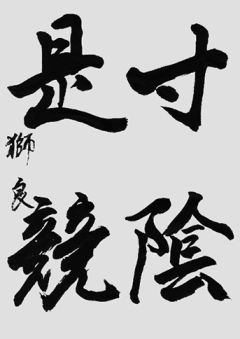 寸陰
是競
獅良